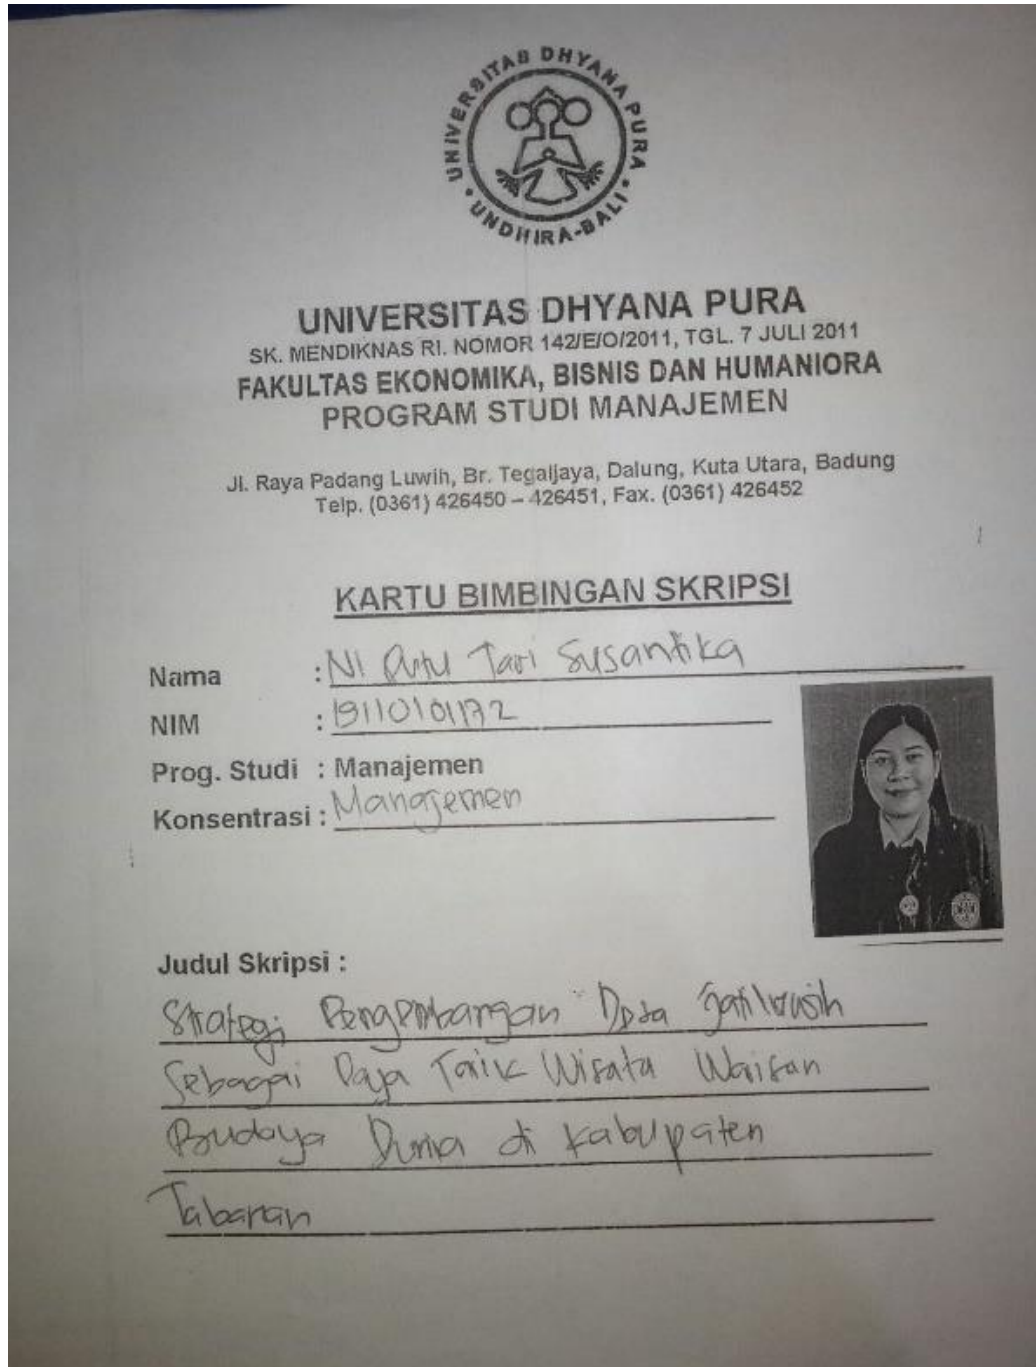 UNIVERSITAS DHYANA PURA
UNDHIRA-BALI
UNIVERSITAS DHYANA PURA
SK. MENDIKNAS RI. NOMOR 142/E/O/2011, TGL. 7 JULI 2011
FAKULTAS EKONOMIKA, BISNIS DAN HUMANIORA
PROGRAM STUDI MANAJEMEN
Jl. Raya Padang Luwih, Br. Tegaljaya, Dalung, Kuta Utara, Badung
Telp. (0361) 426450 – 426451, Fax. (0361) 426452
KARTU BIMBINGAN SKRIPSI
Nama : Ni Putu Tari Susantika
NIM :
Prog. Studi : Manajemen
Konsentrasi : Manajemen
Judul Skripsi :
Strategi Pengembangan Desa Jatiluwih
Sebagai Daya Tarik Wisata Warisan
Budaya Dunia di Kabupaten
Tabanan